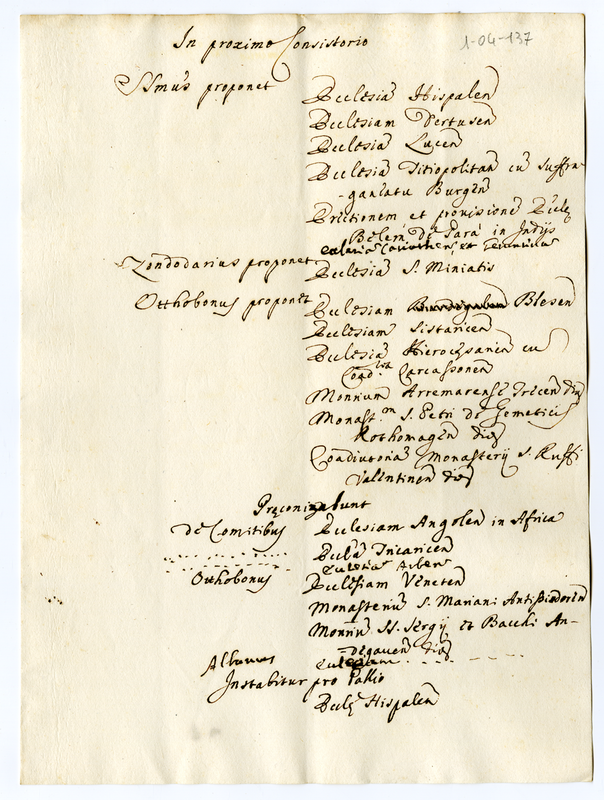 In proximo Consistorio
1-04-137
SSmus proponet
Ecclesiã Hispaleñ
Ecclesiam Dertuseñ
Ecclesiã Luceñ
Ecclesiã Titiopolitañ cũ suffra-
-ganeatu Burgeñ
Erectionem et provisione Eccle
Belem de Parà in Indijs
Zondodarius proponet
Ecclesiã S. Miniatis
Otthobonus proponet
Ecclesiam Bleseñ
Ecclesiam Sistariceñ
Ecclesiã cũ
Coad. Carcassoneñ
Monrium Arremarense Treceñ diẽ
Monast.m S. Petri de Gemeticis
Rothomageñ diẽ
Coadiutoria Monasterij S. Ruffi
Valentineñ diẽ
Præconizabunt
de Comitibus
Ecclesiam Angoleñ in Africa
Eccle Tricariceñ
Otthobonus
Ecclesiam Veneteñ
Monasteriũ S. Mariani Antissiodoreñ
Monriũ SS. Sergij et Bacchi An-
degaveñ diẽ
Albanus
Instabitur pro Pallio
Eccle Hispaleñ